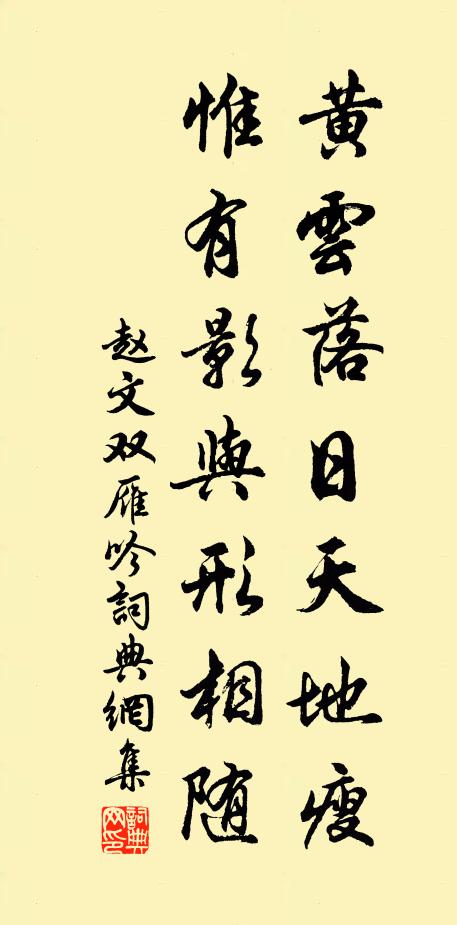 黄雲落日天地瘦
惟有影與形相随
赵文双雁吟詞典網集
詞典网印